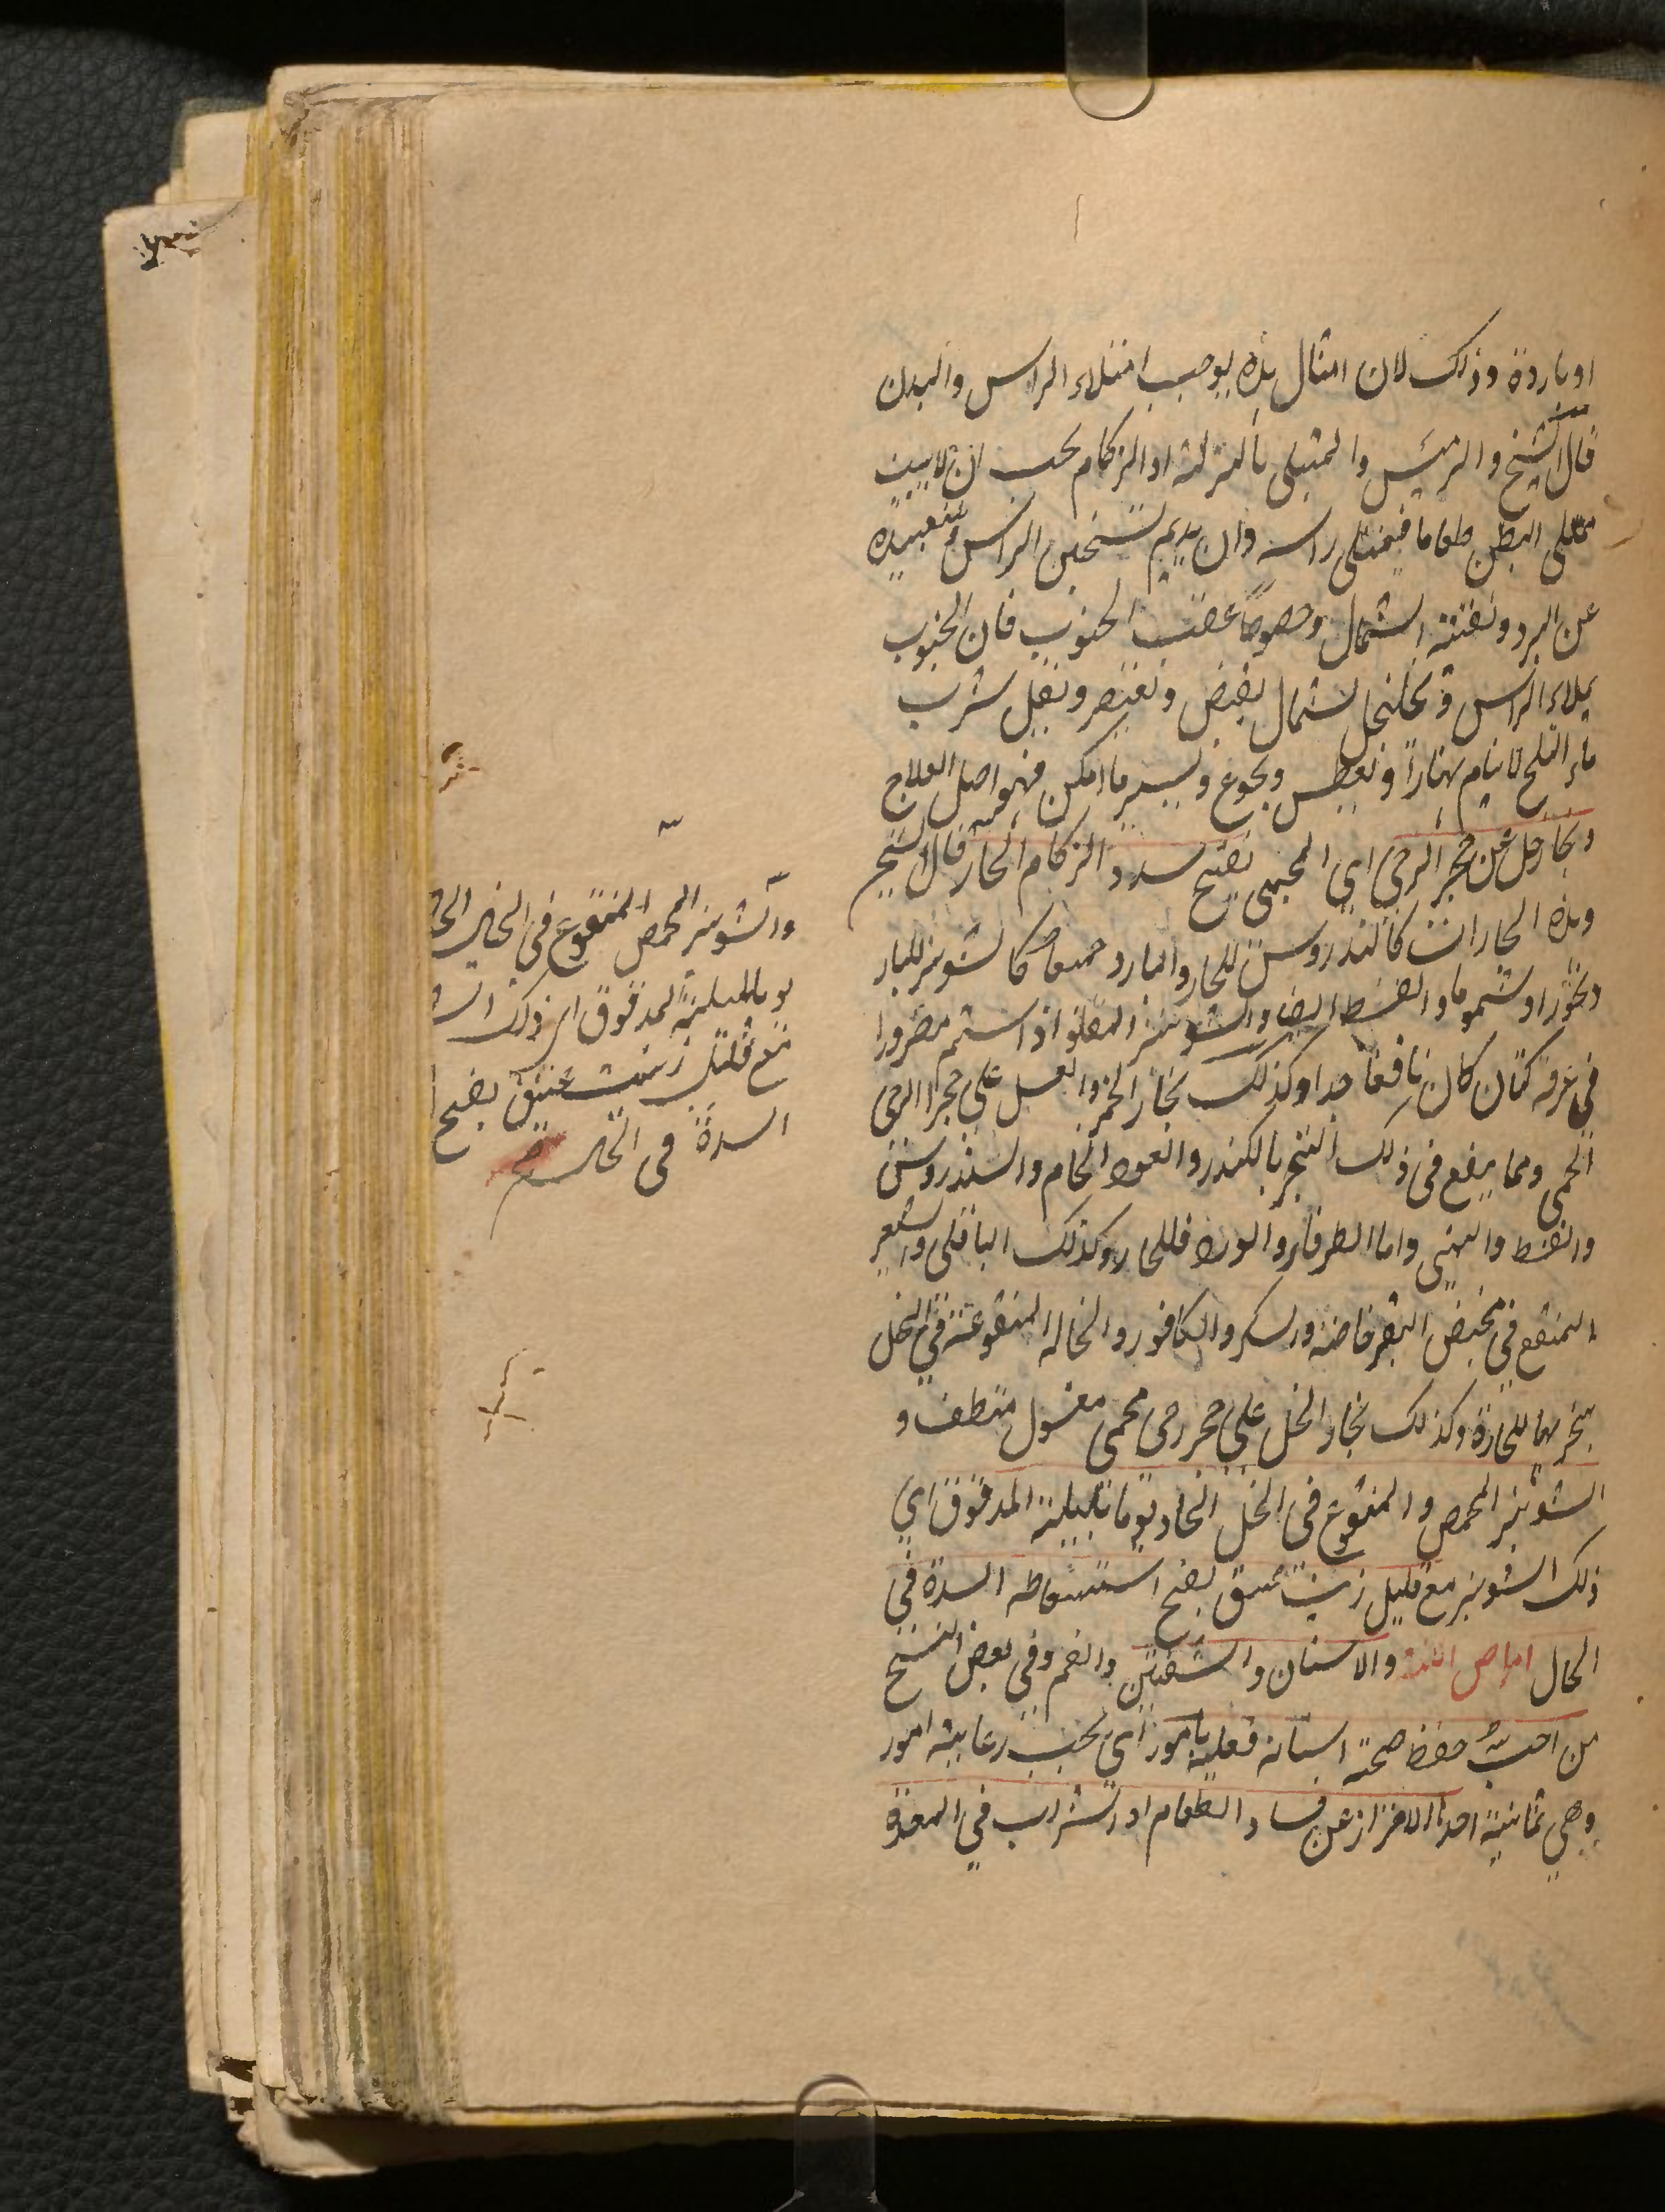 او باردة وذلك لان امثال هذه يوجب امتلاء الراس والبدن
قال الشيخ الرئيس والمبتلى بالنزلة او الزكام يجب ان لا يبيت
ممتلى البطن طعاما فيمتلى راسه وان يديم تسخين الراس وتبعيده
عن البرد وتقيته الشمال وخصوصا عقيب الجنوب فان الجنوب
يملاء الراس وتخلخل الشمال يقبض وتعتصر ونقل شرب
ماء الثلج لا ينام نهارا ويعطس ويجوع ويسهر ما امكن فهو اصل العلاج
وبخار خل عن حجر الرحى اي المحمى يفتح سدد الزكام الحار قال الشيخ
وهذه البخارات كالسندروس للحار والبارد جميعا كالشونيز للبارد
بخورا وشموما والقسط ايضا والشونيز المقلو اذا استشم مصرورا
في خرقة كتان كان نافعا جدا وكذلك بخار الخمر والعسل على حجر الرحى
المحمى ومما ينفع في ذلك التبخر بالكندر والعود الخام والسندروس
والقسط والميعة واما الطرفاء والورد فللحار وكذلك الباقلى والشعير
المنقع في مخيض البقر خاصة والسكر والكافور والنخالة المنقوعة في الخل
تبخر بها للحارة وكذلك بخار الخل على حجر رحى محمى مغسول منظف و
الشونيز المحمص والمنقوع في الخل الحاد يوما بليلة المدقوق اي
ذلك الشونيز مع قليل زيت عتيق يفتح استسعاطه السدة في
الحال امراض اللثة والاسنان والشفتين والفم وفي بعض النسخ
من احب حفظ صحة اسنانه فعليه بامور اي يجب رعاية امور
وهي ثمانية احدها الاحتراز عن فساد الطعام او الشراب في المعدة
والشونيز المحمص المنقوع في الخل الحا
يوما بليلة المدقوق اي ذلك الشو
مع قليل زيت عتيق يفتح ا
السدة في الحال صح